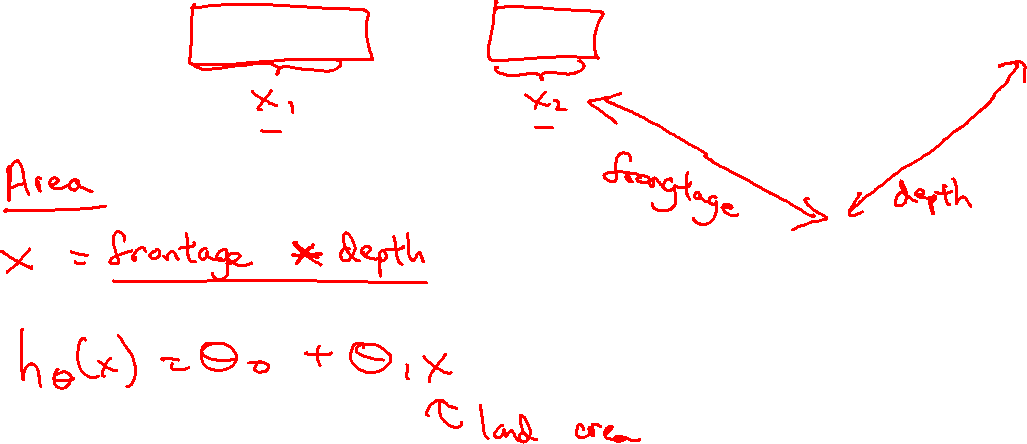 x₁ x₂
frongtage depth
Area
x = frontage * depth
hθ(x) = θ₀ + θ₁x
land area